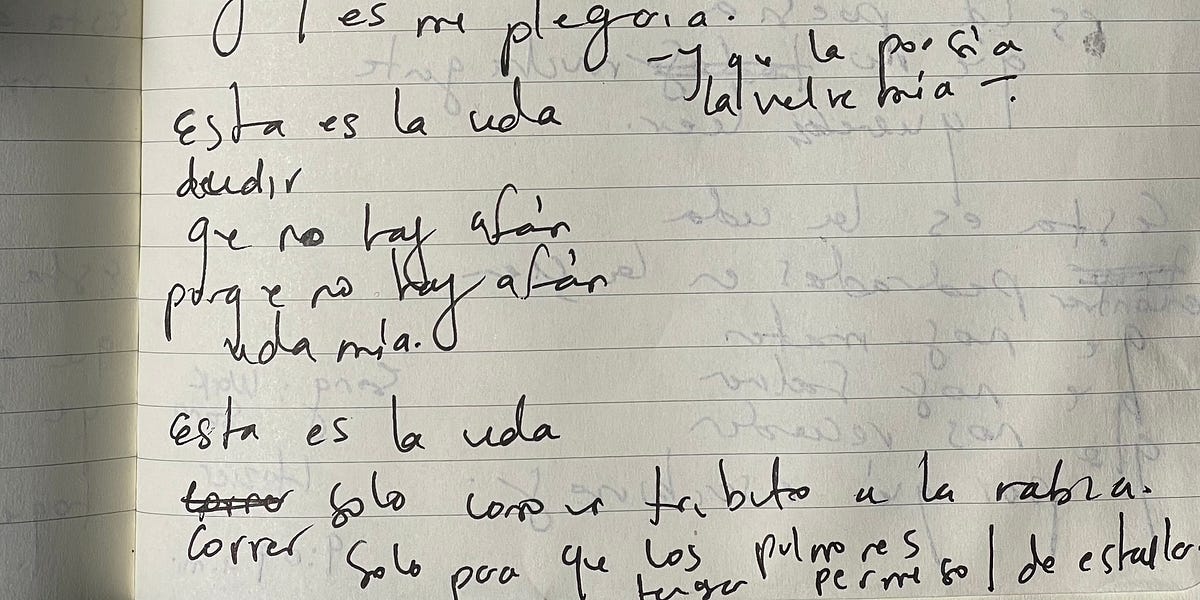 y es mi plegaria.
—y que la poesía
la vuelve mía —.
Esta es la vida
decidir
que no hay afán
porque no hay afán
vida mía.
Esta es la vida
correr solo como un tributo a la rabia.
correr solo para que los pulmones
tengan permiso / de estallar